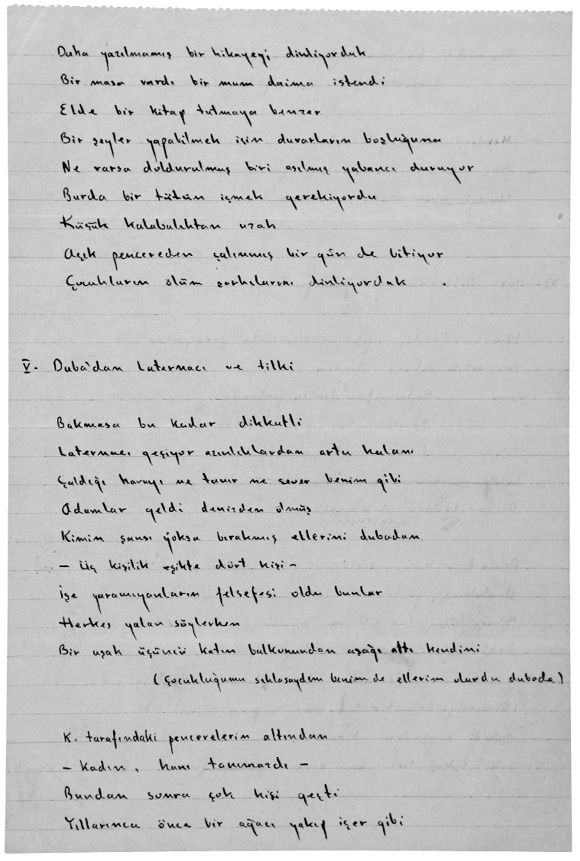 Daha yazılmamış bir hikayeyi dinliyorduk
Bir masa vardı bir mum daima istendi
Elde bir kitap tutmaya benzer
Bir şeyler yapabilmek için duvarların boşluğuna
Ne varsa doldurulmuş biri asılmış yabancı duruyor
Burda bir tütün içmek gerekiyordu
Küçük kalabalıktan uzak
Açık pencereden çalınmış bir gün de bitiyor
Çocukların ölüm şarkılarını dinliyorduk .
V. Duba'dan Laternacı ve tilki
Bakmasa bu kadar dikkatli
Laternacı geçiyor azınlıklardan artı kalanı
Çaldığı havayı ne tanır ne sever benim gibi
Adamlar geldi denizden ölmüş
Kimin şansı yoksa bırakmış ellerini dubadan
- Üç kişilik eşikte dört kişi -
İşe yaramıyanların felsefesi oldu bunlar
Herkes yalan söylerken
Bir uşak üçüncü katın balkonundan aşağı attı kendini
(Çocukluğumu saklasaydım benim de ellerim dururdu dubada)
K. tarafındaki pencerelerin altından
- Kadın, hanı tanımazdı -
Bundan sonra çok kişi geçti
Yıllarınca önce bir ağacı yakıp içer gibi